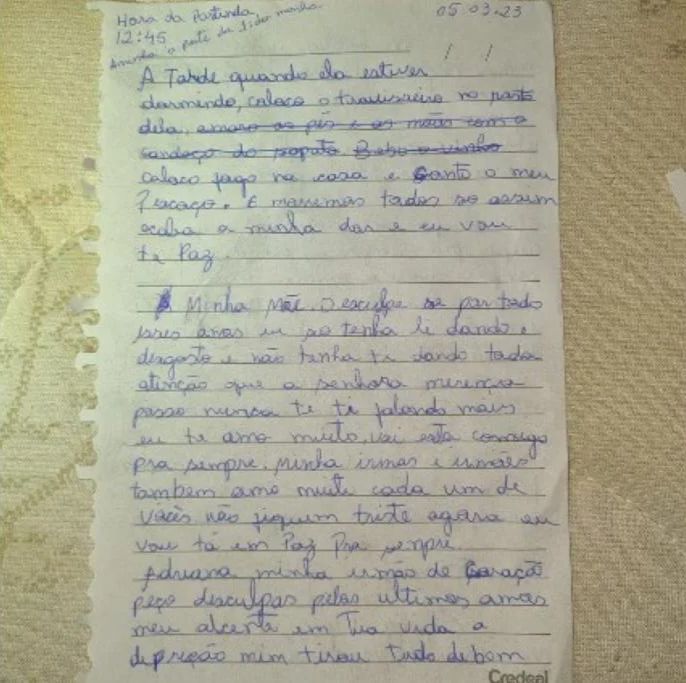 Hora da Partinda
05.03.23
12:45
A Tarde quando ela estiver
dormindo, coloco o travisseiro no rosto
dela, amaro os pés e as mãos com o
do sapato. Bebo o vinho
coloco fogo na casa e Ganto o meu
E moremos todos so assim
acaba a minha dor e eu vou
te Paz.
Minha Mãe. Desculpe se por todo
eses anos eu so tenha te dando
desgosto e não tenha te dando toda
atenção que a senhora merencia
posso nunca te ti falando mais
eu te amo muito, vai esta comsigo
pra sempre. Minha irmas e irmãos
tambem amo muito cada um de
vocês não fiquem triste agora eu
vou tá em Paz Pra senpre.
Adruana minha irmão de Coração
peço desculpas pelos ultimos
meu em Tua vida a
depreção mim tirou tudo de bom
Credeal